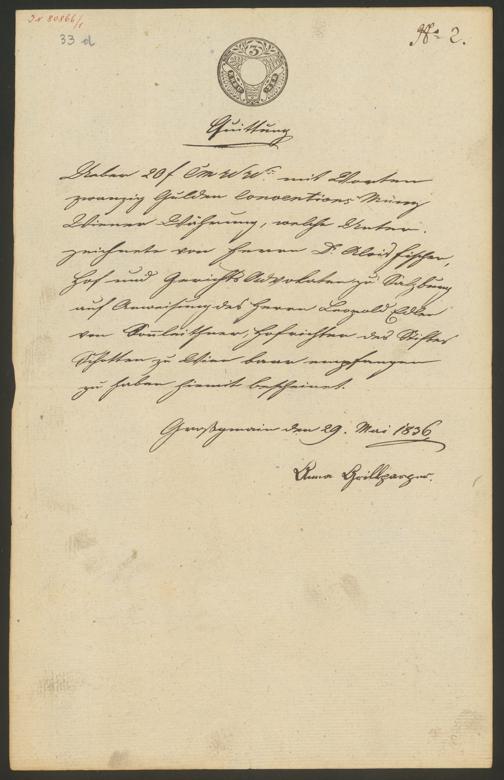 IN 80866/1
33 d
No 2.
3
Quittung
Ueber 20 f CM WW: mit Worten
zwanzig Gulden Conventions Münz
Wiener Währung, welche Unter-
zeichnete von Herrn Dr. Alois Fischer,
Hof und Gerichts Advokaten zu Salzburg
auf Anweisung des Herrn Leopold Edlen
von Sonnleithner, Hofrichter des Stiftes
Schotten zu Wien baar empfangen
zu haben hiemit bescheinet.
Großgmain den 29. Mai 1836
Anna Grillparzer.